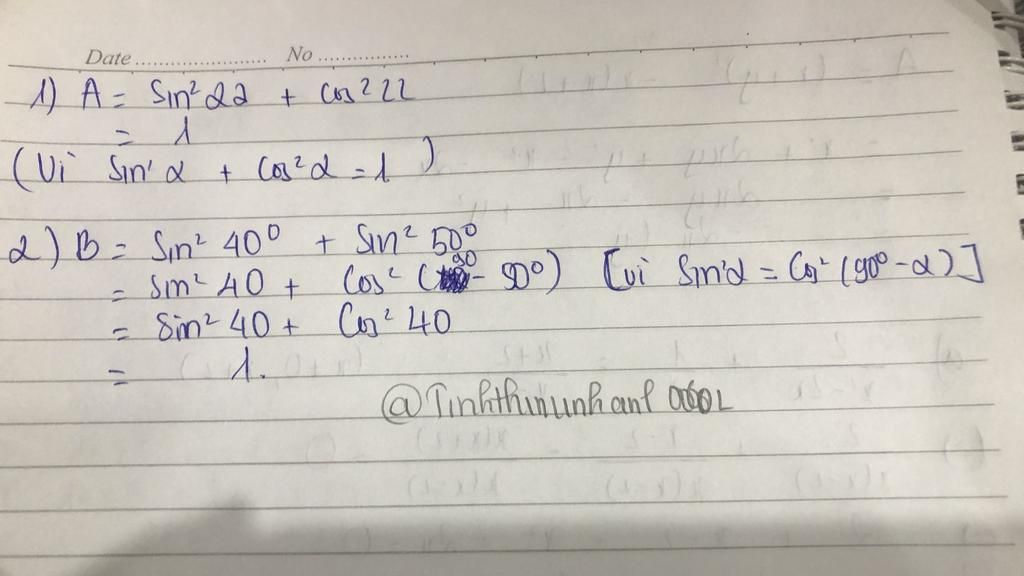 Date ........................ No .................
1) A = Sin² 22 + cos² 22
= 1
(Vì Sin² α + Cos² α = 1)
2) B = Sin² 40⁰ + Sin² 50⁰
= Sin² 40 + Cos² (90 - 50⁰) [vì Sin²α = Cos² (90⁰ - α)]
= Sin² 40 + Cos² 40
= 1.